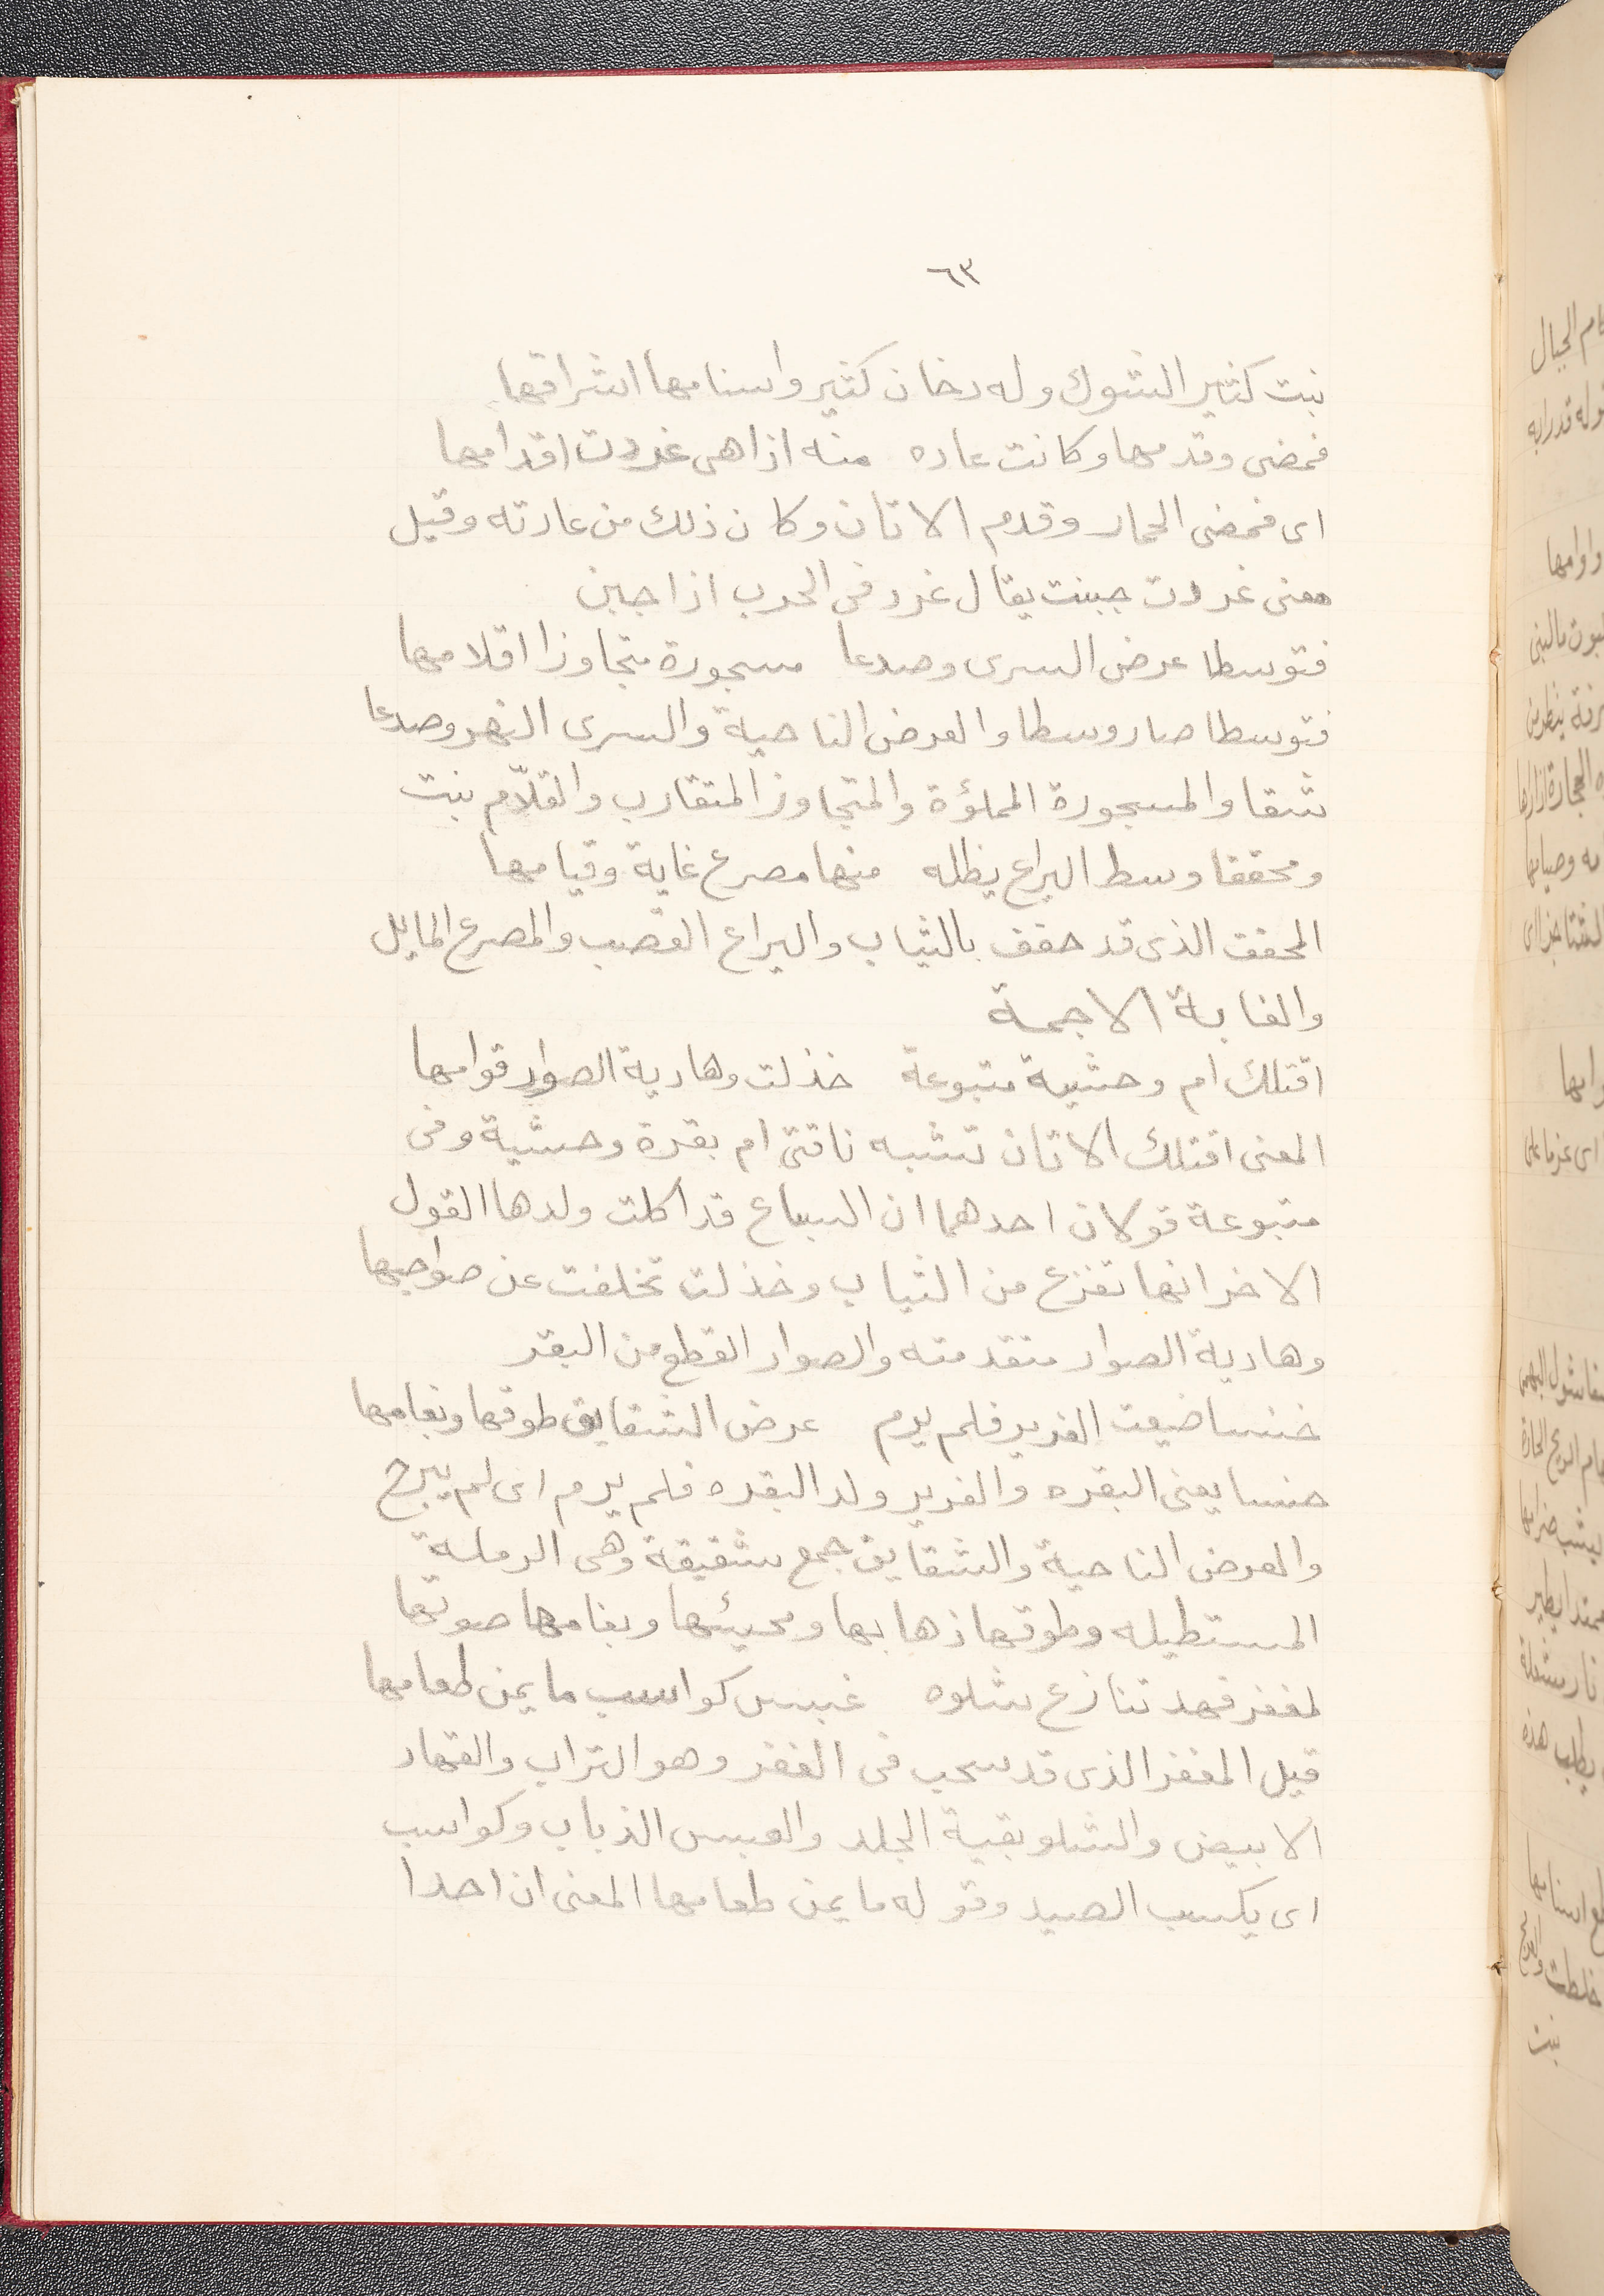 ٦٣
نبت كثير الشوك وله دخان كثير واسنامها اشراقها
فمضى وقدمها وكانت عاده منه اذا هى غردت اقدامها
اى فمضى الحمار وقدم الاتان وكان ذلك من عادته وقيل
معنى غردت جبنت يقال غرد فى الحرب اذا جبن
فتوسطا عرض السرى وصدعا مسجورة متجاوزا اقلامها
فتوسطا صار وسطا والعرض الناحية والسرى النهر وصدعا
شقا والمسجورة المملؤة والمتجاوز المتقارب والقلّام نبت
ومحققا وسط اليراع يظله منها مصرع غاية وقيامها
المحفف الذى قد حفف بالثياب واليراع القصب والمصرع المايل
والغابة الاجمة
افتلك ام وحشية متبوعة خذلت وهادية الصوار قوامها
المعنى افتلك الاتان تشبه ناقتى ام بقرة وحشية وفى
متبوعة قولان احدهما ان السباع قد اكلت ولدها القول
الاخر انها تفزع من الثياب وخذلت تخلفت عن صواحبها
وهادية الصوار متقدمته والصوار القطع من البقر
خنسا ضيعت الفرير فلم يرم عرض الشقايق طوقها وبغامها
خنسا يعنى البقره والفرير ولد البقره فلم يرم اى لم يبرح
والعرض الناحية والشقايق جمع شقيقة وهى الرملة
المستطيله وطوقها ذهابها ومحيئها وبغامها صوتها
لمغفر قهد تنازع شلوه غبس كواسب ما يمن طعامها
قيل المغفر الذى قد سحب فى الغفر وهو التراب والقهاد
الابيض والشلو بقية الجلد والعبس الذباب وكواسب
اى يكسب الصيد وقوله ما يمن طعامها المعنى ان احدا